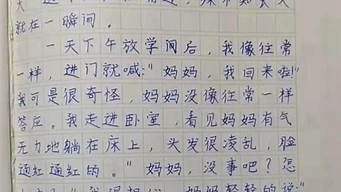 就在一瞬间。
一天下午放学回后，我像往常
一样，进门就喊:"妈妈，我回来啦!"
我可是很奇怪，妈妈没像往常一样
答应。我走进卧室，看见妈妈有气
无力地躺在床上，头发很凌乱，脸
通红通红的。"妈妈，没事吧?怎
妈妈轻轻的说:"